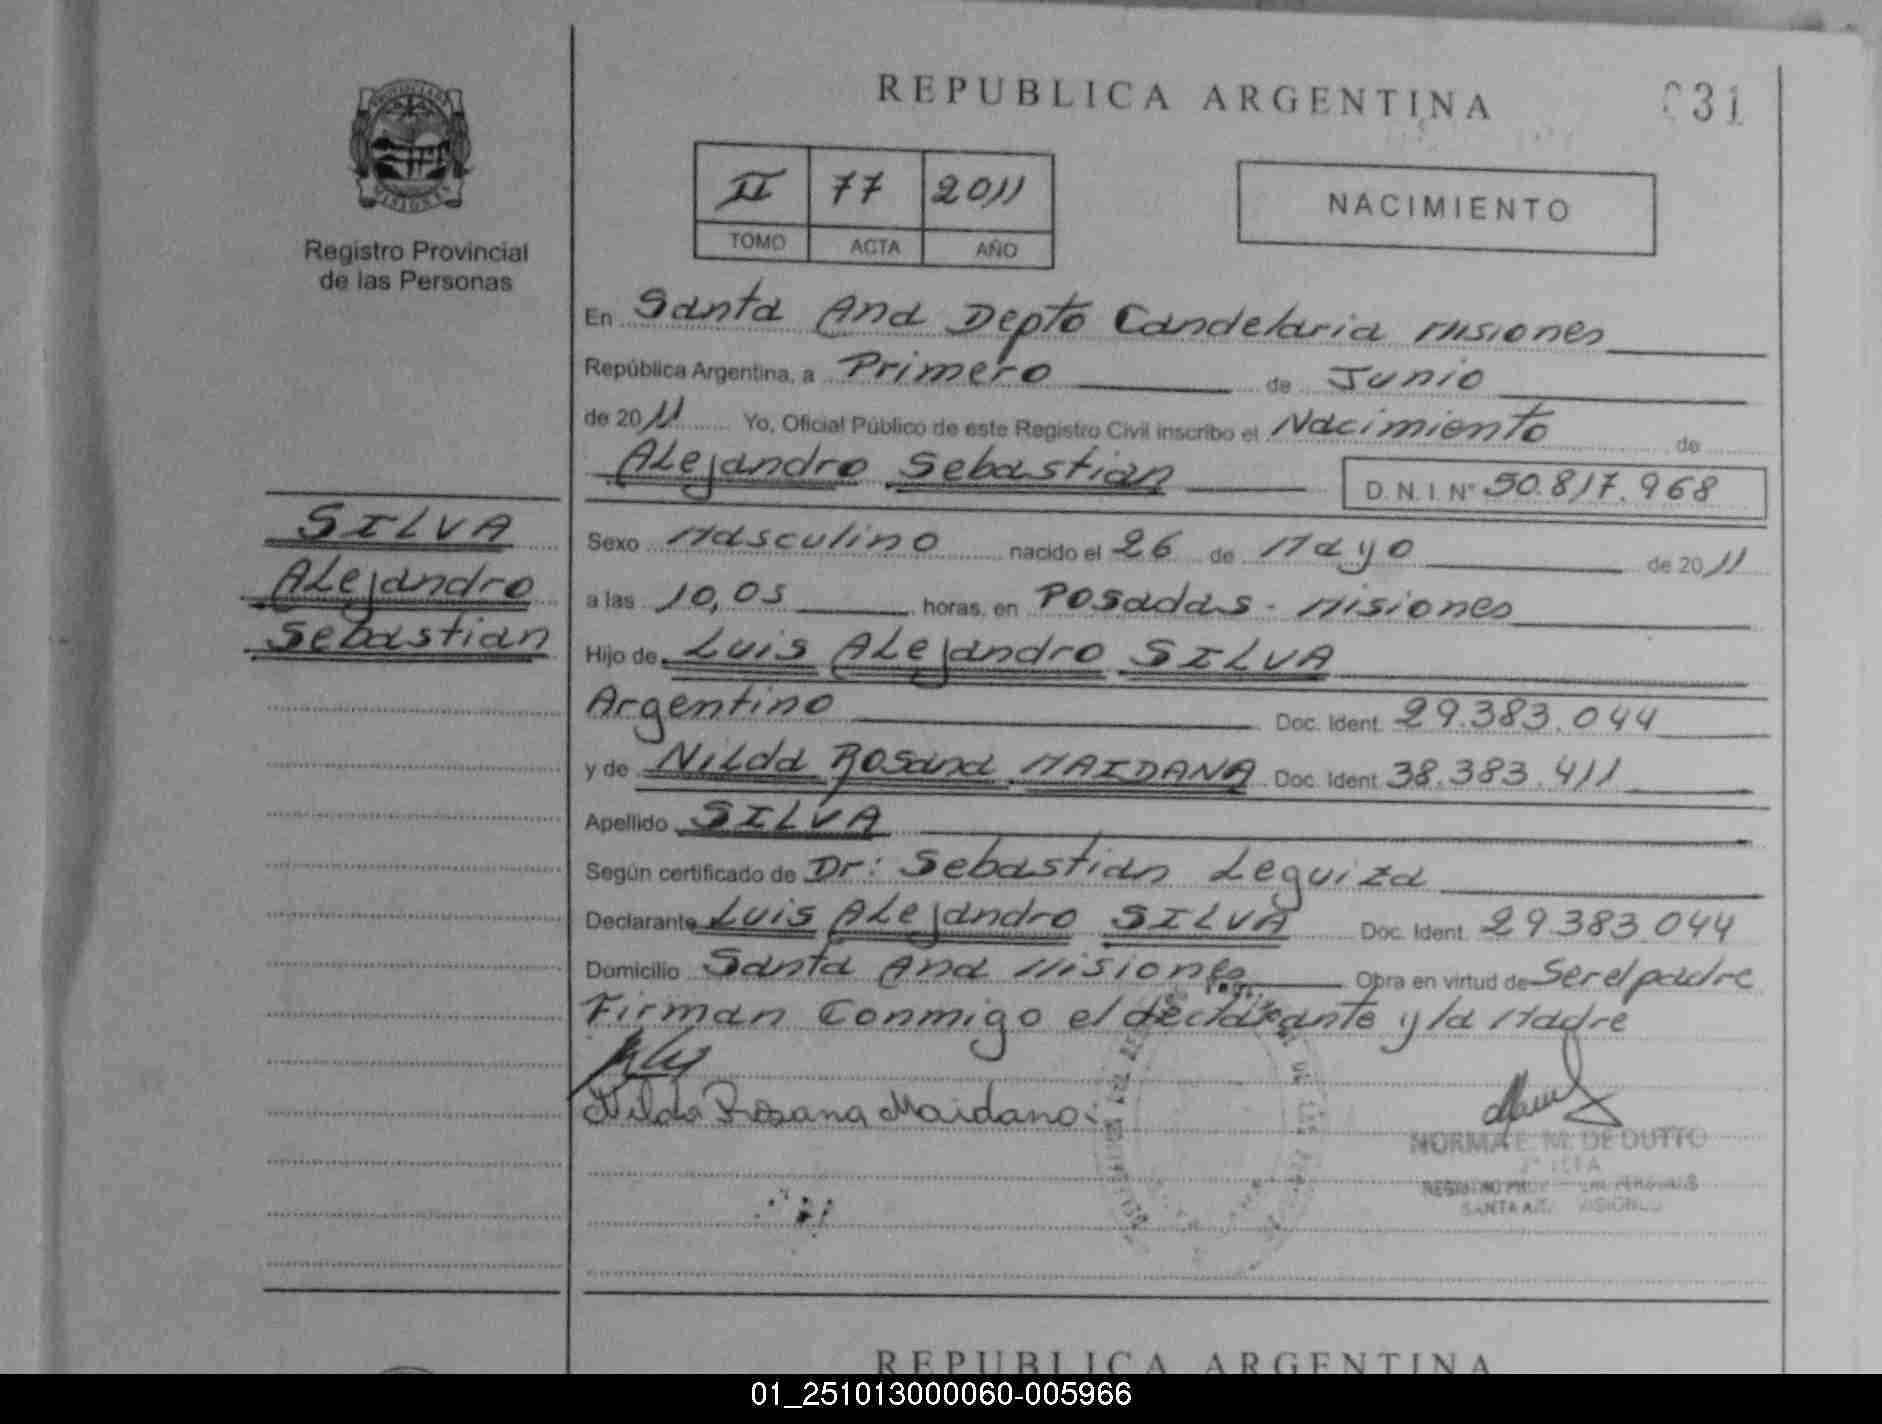 REPUBLICA ARGENTINA
031
PROVINCIA DE MISIONES
Registro Provincial
de las Personas
II 77 2011
TOMO ACTA AÑO
NACIMIENTO
En Santa Ana Depto Candelaria Misiones
República Argentina, a Primero de Junio
de 2011 Yo, Oficial Público de este Registro Civil inscribo el Nacimiento de
Alejandro Sebastian D.N.I. N° 50.817.968
SILVA
Alejandro
Sebastian
Sexo Masculino nacido el 26 de Mayo de 2011
a las 10,05 horas, en Posadas - Misiones
Hijo de Luis Alejandro SILVA
Argentino Doc. Ident. 29.383.044
y de Nilda Rosana MAIDANA Doc. Ident. 38.383.411
Apellido SILVA
Según certificado de Dr: Sebastian Leguiza
Declarante Luis Alejandro SILVA Doc. Ident. 29.383.044
Domicilio Santa Ana Misiones Obra en virtud de Ser el padre
Firman Conmigo el declarante y la Madre
Nilda Rosana Maidana
NORMA E. M. DE DUTTO
SANTA ANA MISIONES
REPUBLICA ARGENTINA
01_251013000060-005966